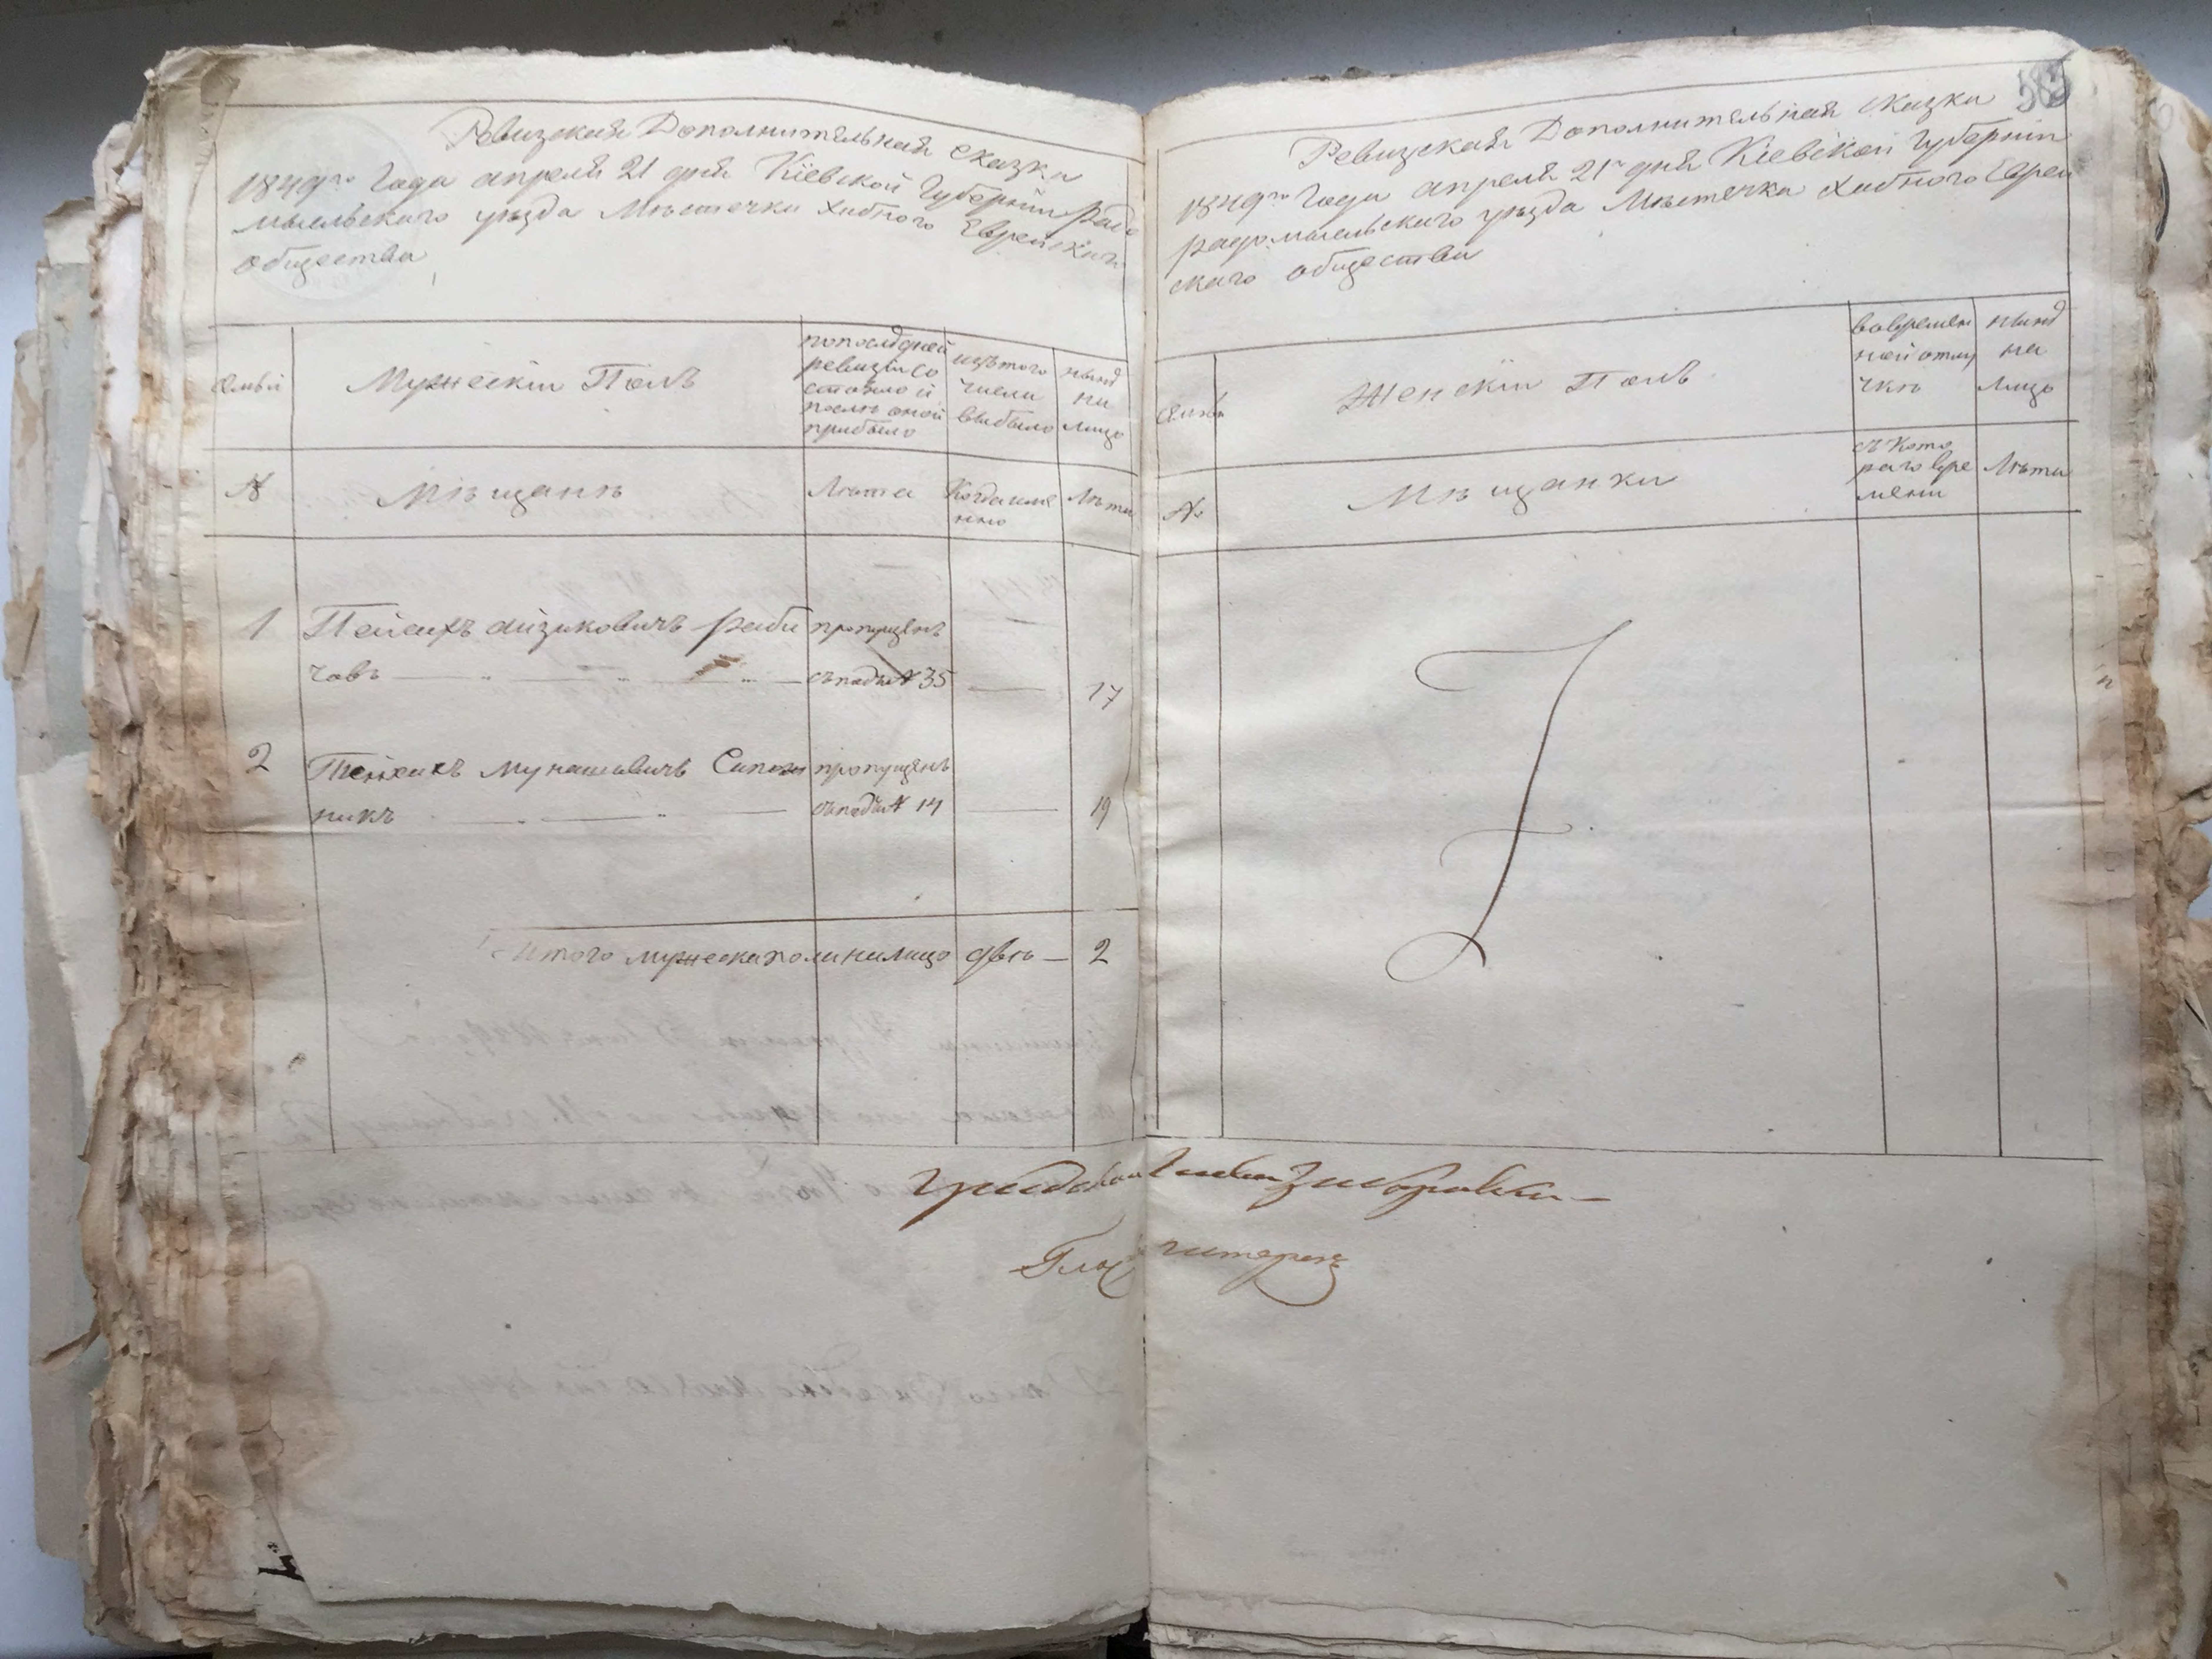 Ревизская Дополнительная сказка
1849го Года апреля 21 дня Кіевской Губерніи Радо
мысльскаго уезда Местечка Хабного Еврейскаго
общества
Мужескій Полъ
по последней
ревизіи со
стояло и
после оной
прибыло
изъ того
числа
выбыло
ныне
на
лицо
№
Мещане
Лета
Когда име
нно
Лета
1
Пейсахъ Айзиковичъ Раби
човъ
пропущенъ
съ подъ № 35
17
2
Мунашовичъ Сапож
никъ
пропущенъ
съ подъ № 14
19
Итого мужеска пола на лицо две — 2
Ревизская Дополнительная сказка
1849го Года апреля 21го дня Кіевской Губерніи
радомысльскаго уезда Местечка Хабного Еврей
скаго общества
Женскій Полъ
во времен
ной отлу
чке
ныне
на
лицо
№
Мещанки
съ кото
раго вре
мени
Лета